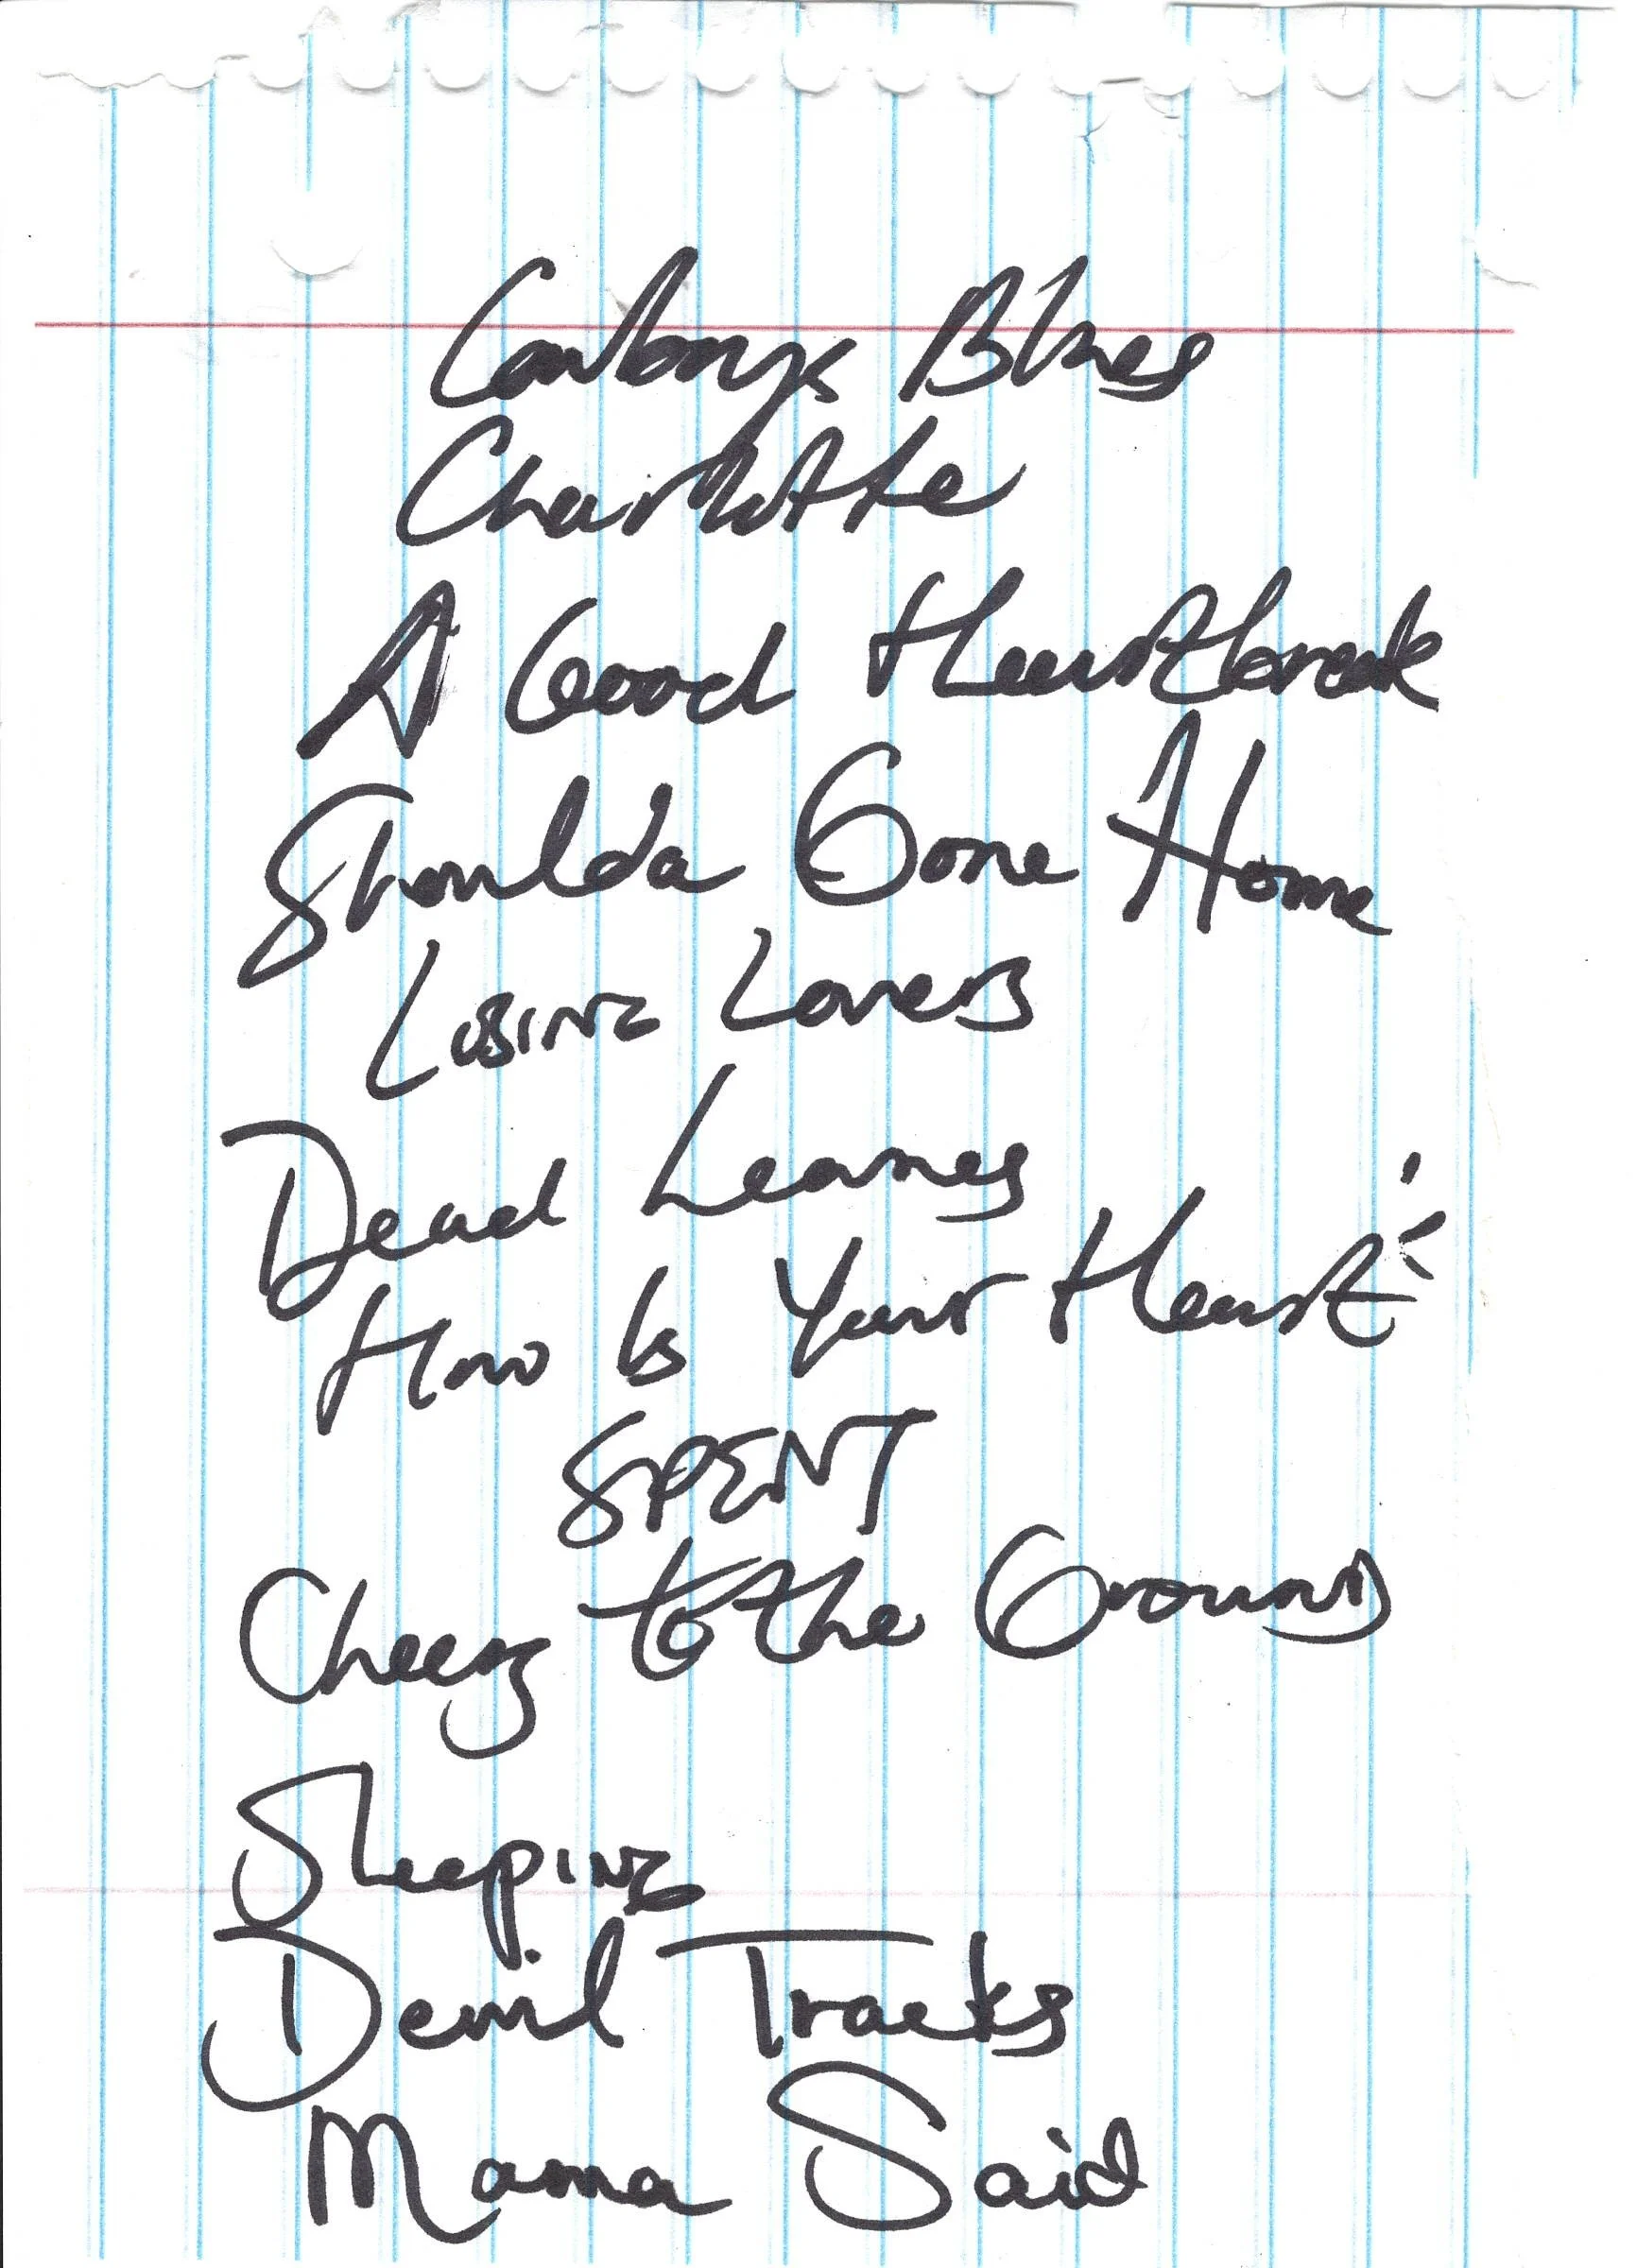 Cowboys Blues
Charlotte
A Good Heartbreak
Shoulda Gone Home
Losing Lovers
Dead Leaves
How Is Your Heart
SPENT
to the Ground
Sleeping
Devil Tracks
Mama Said